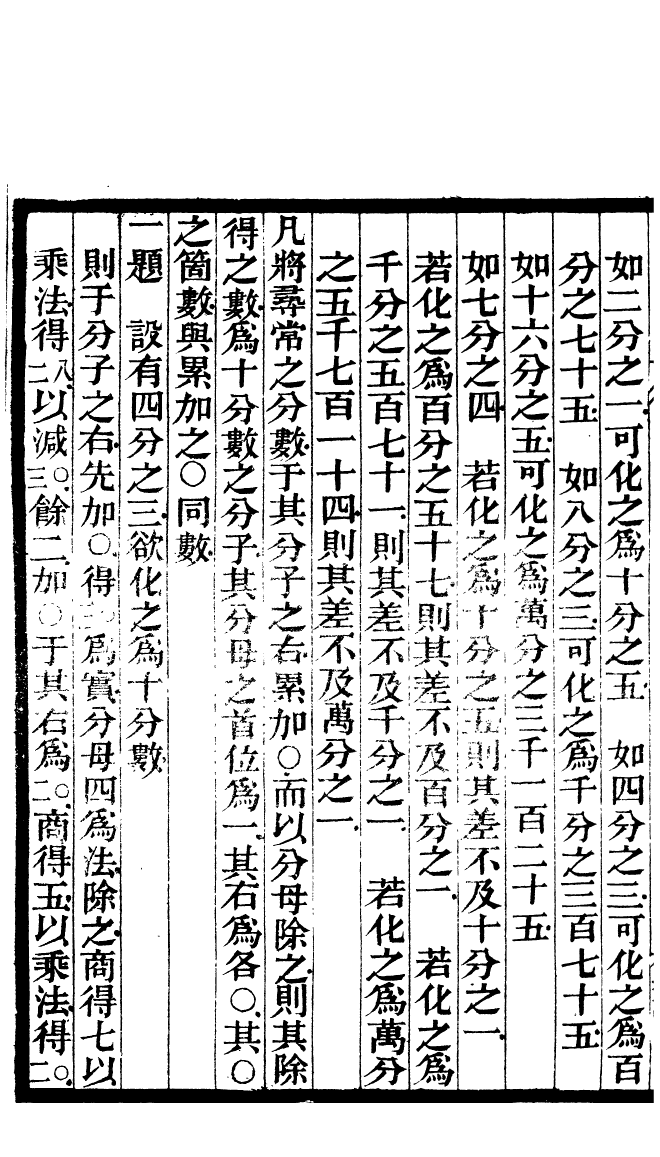 如二分之一可化之爲十分之五　如四分之三可化之爲百
分之七十五　如八分之三可化之爲千分之三百七十五
如十六分之五可化之爲萬分之三千一百二十五
如七分之四　若化之爲十分之五則其差不及十分之一
若化之爲百分之五十七則其差不及百分之一　若化之爲
千分之五百七十一則其差不及千分之一　若化之爲萬分
之五千七百一十四則其差不及萬分之一
凡將尋常之分數于其分子之右累加○而以分母除之則其除
得之數爲十分數之分子其分母之首位爲一其右爲各○其○
之箇數與累加之○同數
一題　設有四分之三欲化之爲十分數
則于分子之右先加○得三○爲實分母四爲法除之商得七以
乘法得二八以減三○餘二加○于其右爲二○商得五以乘法得二○